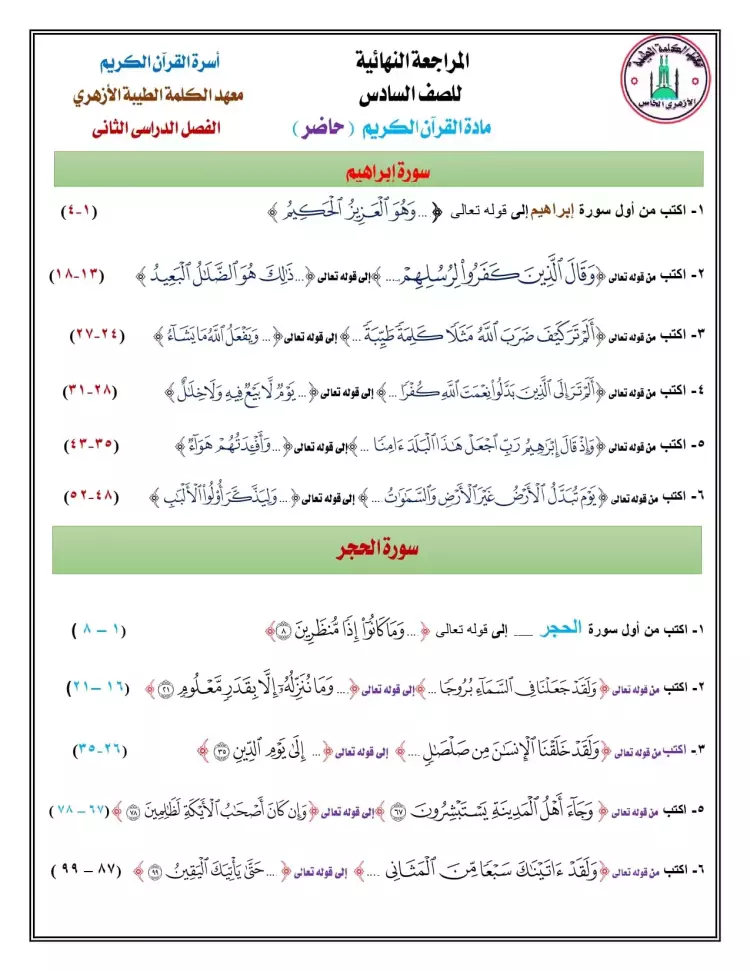 المراجعة النهائية
للصف السادس
مادة القرآن الكريم ( حاضر )
أسرة القرآن الكريم
معهد الكلمة الطيبة الأزهري
الفصل الدراسى الثانى
معهد الكلمة الطيبة
الأزهرى الخاص
سورة إبراهيم
١- اكتب من أول سورة إبراهيم إلى قوله تعالى ﴿ ... وَهُوَ الْعَزِيزُ الْحَكِيمُ ﴾ (١-٤)
٢- اكتب من قوله تعالى ﴿وَقَالَ الَّذِينَ كَفَرُوا لِرُسُلِهِمْ .... ﴾ إلى قوله تعالى ﴿... ذَٰلِكَ هُوَ الضَّلَالُ الْبَعِيدُ ﴾ (١٣-١٨)
٣- اكتب من قوله تعالى ﴿أَلَمْ تَرَ كَيْفَ ضَرَبَ اللَّهُ مَثَلًا كَلِمَةً طَيِّبَةً ...﴾ إلى قوله تعالى ﴿ ... وَيَفْعَلُ اللَّهُ مَا يَشَاءُ ﴾ (٢٤-٢٧)
٤- اكتب من قوله تعالى ﴿أَلَمْ تَرَ إِلَى الَّذِينَ بَدَّلُوا نِعْمَتَ اللَّهِ كُفْرًا ... ﴾ إلى قوله تعالى ﴿ ... يَوْمٌ لَّا بَيْعٌ فِيهِ وَلَا خِلَالٌ ﴾ (٢٨-٣١)
٥- اكتب من قوله تعالى ﴿وَإِذْ قَالَ إِبْرَاهِيمُ رَبِّ اجْعَلْ هَٰذَا الْبَلَدَ ءَامِنًا ... ﴾ إلى قوله تعالى ﴿ ... وَأَفْئِدَتُهُمْ هَوَاءٌ ﴾ (٣٥-٤٣)
٦- اكتب من قوله تعالى ﴿يَوْمَ تُبَدَّلُ الْأَرْضُ غَيْرَ الْأَرْضِ وَالسَّمَاوَاتُ ... ﴾ إلى قوله تعالى ﴿ ... وَلِيَذَّكَّرَ أُولُوا الْأَلْبَابِ ﴾ (٤٨-٥٢)
سورة الحجر
١- اكتب من أول سورة الحجر __ إلى قوله تعالى ﴿ ... وَمَا كَانُوا إِذًا مُّنظَرِينَ ٨ ﴾ (١ – ٨ )
٢- اكتب من قوله تعالى ﴿ وَلَقَدْ جَعَلْنَا فِي السَّمَاءِ بُرُوجًا ... ﴾ إلى قوله تعالى ﴿ .... وَمَا نُنَزِّلُهُ إِلَّا بِقَدَرٍ مَّعْلُومٍ ٢١ ﴾ (١٦ –٢١)
٣- اكتب من قوله تعالى ﴿وَلَقَدْ خَلَقْنَا الْإِنسَانَ مِن صَلْصَالٍ .... ﴾ إلى قوله تعالى ﴿ ... إِلَىٰ يَوْمِ الدِّينِ ٣٥ ﴾ (٢٦-٣٥)
٥- اكتب من قوله تعالى ﴿ وَجَاءَ أَهْلُ الْمَدِينَةِ يَسْتَبْشِرُونَ ٦٧ ﴾ إلى قوله تعالى ﴿وَإِن كَانَ أَصْحَابُ الْأَيْكَةِ لَظَالِمِينَ ٧٨ ﴾ (٦٧ – ٧٨ )
٦- اكتب من قوله تعالى ﴿وَلَقَدْ ءَاتَيْنَاكَ سَبْعًا مِّنَ الْمَثَانِي .... ﴾ إلى قوله تعالى ﴿ ... حَتَّىٰ يَأْتِيَكَ الْيَقِينُ ٩٩ ﴾ (٨٧ – ٩٩ )